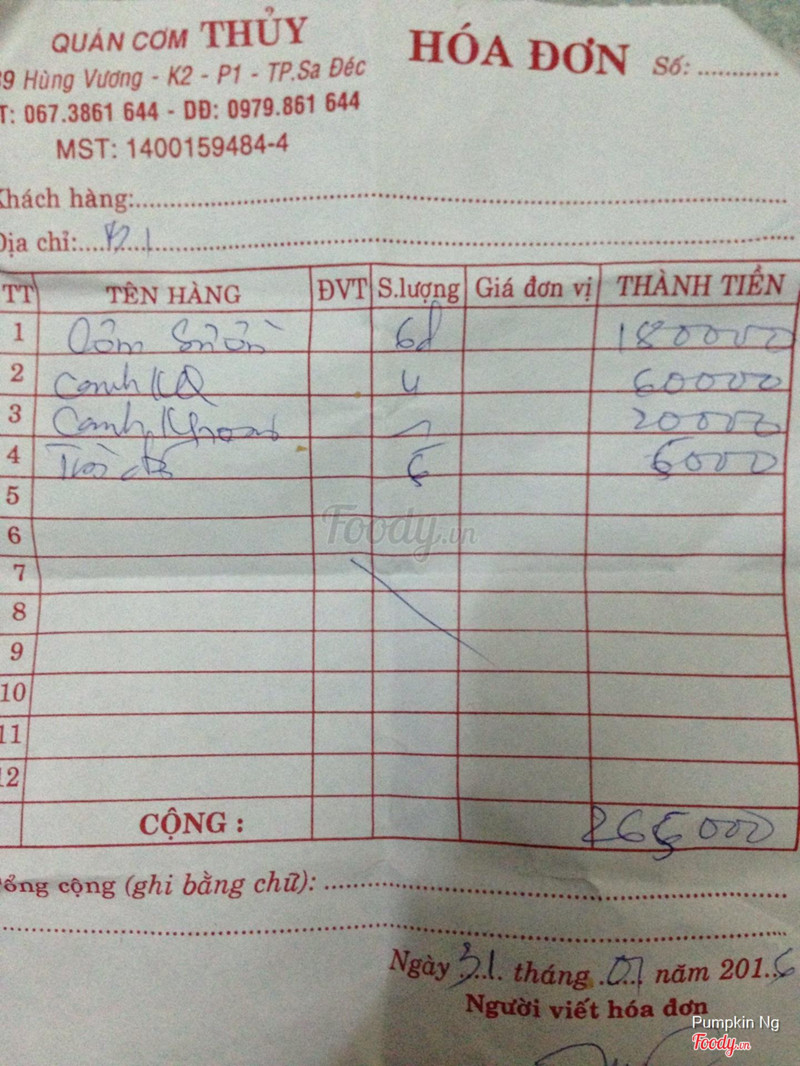 QUÁN CƠM THỦY
HÓA ĐƠN Số: ............
39 Hùng Vương - K2 - P1 - TP.Sa Đéc
T: 067.3861 644 - DĐ: 0979.861 644
MST: 1400159484-4
Khách hàng:
Địa chỉ:
TT TÊN HÀNG ĐVT S.lượng Giá đơn vị THÀNH TIỀN
1 Cơm Sườn 6đ 180000
2 Canh KQ 4 60000
3 Canh 1 20000
4 Trà đá 5 5000
5
6
7
8
9
10
11
12
CỘNG : 265000
Tổng cộng (ghi bằng chữ):
Ngày 31 tháng 07 năm 2016
Người viết hóa đơn
Foody.vn
Pumpkin Ng
Foody.vn